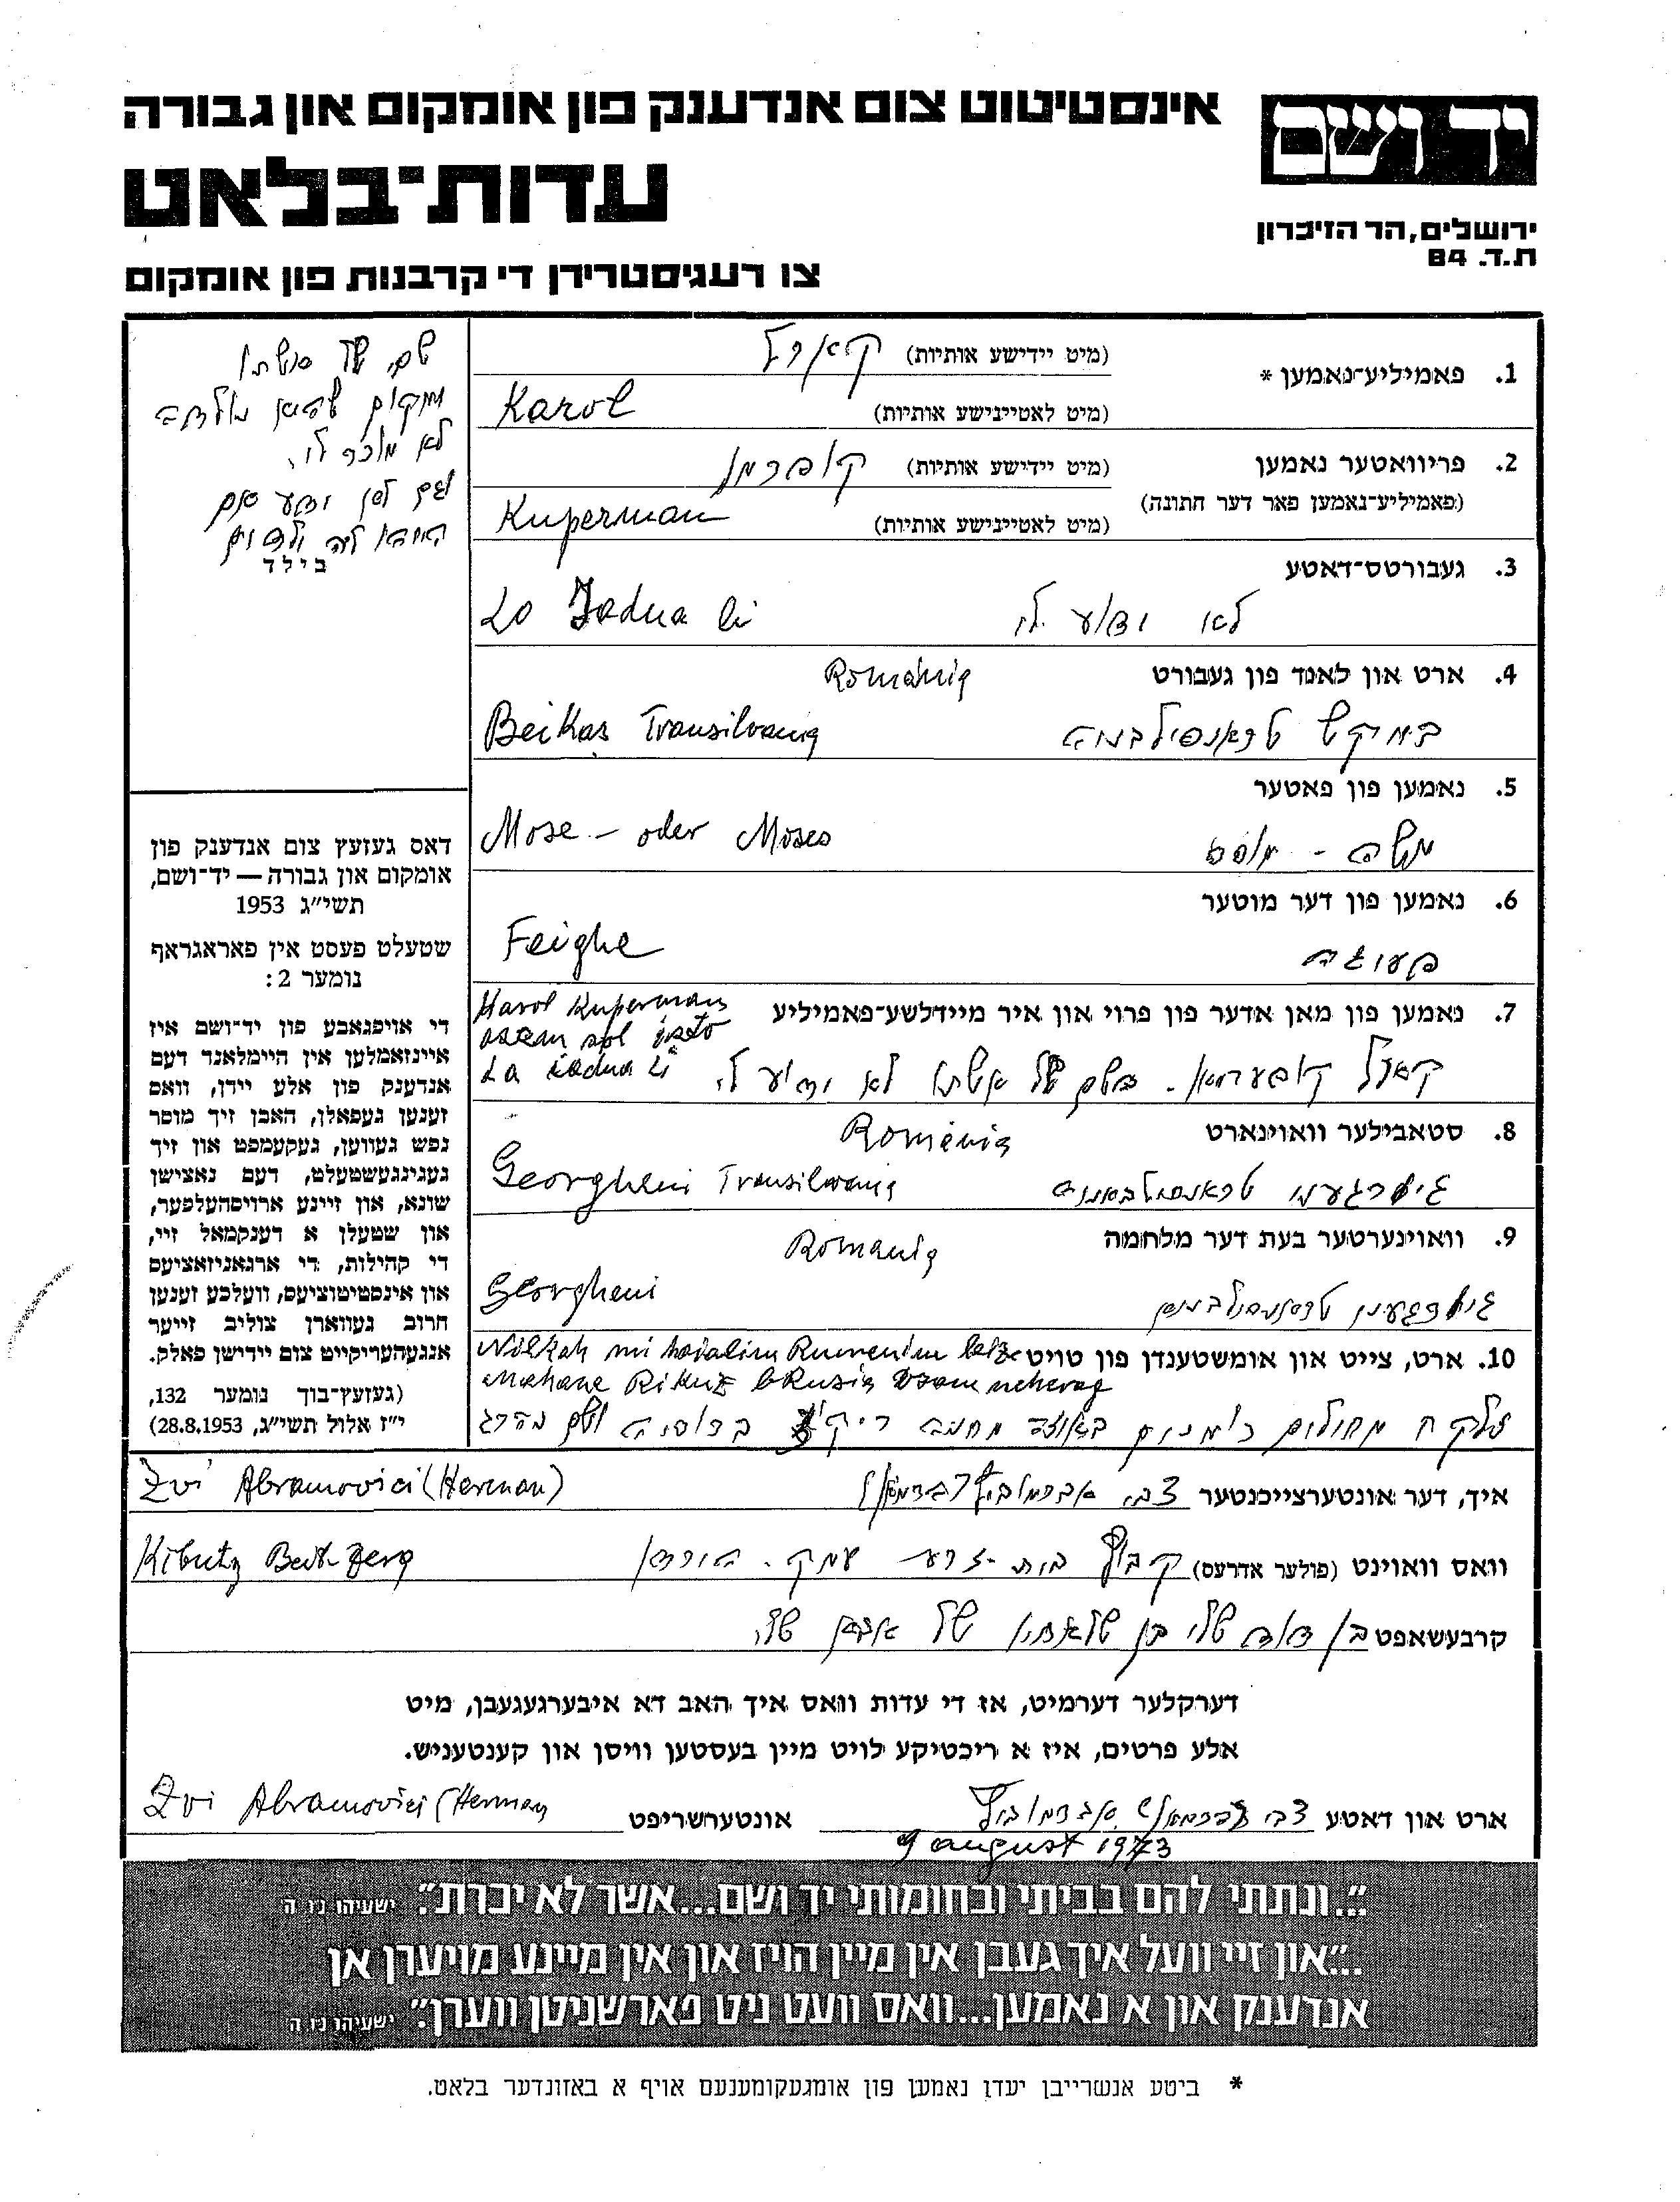 אינסטיטוט צום אנדענק פון אומקום און גבורה
יד ושם
עדות־בלאט
ירושלים, הר הזיכרון
ת.ד. 84
צו רעגיסטרירן די קרבנות פון אומקום
1. פאמיליע־נאמען *
(מיט יידישע אותיות) קארל
(מיט לאטיינישע אותיות) Karol
2. פריוואטער נאמען
(פאמיליע־נאמען פאר דער חתונה)
(מיט יידישע אותיות) קופרמן
(מיט לאטיינישע אותיות) Kuperman
3. געבורטס־דאטע
לא ידוע לי Lo Jadua li
4. ארט און לאנד פון געבורט România
Beikas Transilvania
5. נאמען פון פאטער
משה - מוסס Mose - oder Moses
6. נאמען פון דער מוטער
Feighe
7. נאמען פון מאן אדער פון פרוי און איר מיידלשע־פאמיליע Karol Kuperman
La iadua li
קארל קופערמאן. השם של אשתו לא ידוע לי
8. סטאבילער וואוינארט România
Georgheni Transilvania
9. וואוינערטער בעת דער מלחמה Romania
Georgheni
10. ארט, צייט און אומשטענדן פון טויט Nilkah mi haialim Rumenim
Mahane Rikuz bRusia vsam neherag
נלקח מחיילים רומנים לאיזה מחנה ריכוז ברוסיה ושם נהרג
שם של אשתו
ומקום שהיא נולדה
לא מוכר לי
וגם לא ידוע אם
היו לה ילדים
בילד
דאס געזעץ צום אנדענק פון
אומקום און גבורה — יד־ושם,
תשי״ג 1953
שטעלט פעסט אין פאראגראף
נומער 2:
די אויפגאבע פון יד־ושם איז
איינזאמלען אין היימלאנד דעם
אנדענק פון אלע יידן, וואס
זענען געפאלן, האבן זיך מוסר
נפש געווען, געקעמפט און זיך
געגינגעשטעלט, דעם נאצישן
שונא, און זיינע ארויסהעלפער,
און שטעלן א דענקמאל זיי,
די קהילות, די ארגאניזאציעס
און אינסטיטוציעס, וועלכע זענען
חרוב געווארן צוליב זייער
אנגעהעריקייט צום יידישן פאלק.
(געזעץ־בוך נומער 132,
י״ז אלול תשי״ג, 28.8.1953)
איך, דער אונטערצייכנטער צבי אברמוביץ (הרמאן) Zvi Abramovici (Herman)
וואס וואוינט (פולער אדרעס) קיבוץ בית־זרע עמק הירדן Kibutz Beit-Zera
קרבעשאפט בן דודה שלי בן של אחיו של אבא שלי
דערקלער דערמיט, אז די עדות וואס איך האב דא איבערגעגעבן, מיט
אלע פרטים, איז א ריכטיקע לויט מיין בעסטען וויסן און קענטעניש.
ארט און דאטע צבי הרמאן אברמוביץ אונטערשריפט Zvi Abramovici (Herman
9 august 1973
״...ונתתי להם בביתי ובחומותי יד ושם...אשר לא יכרת״. ישעיהו נו ה
...״און זיי וועל איך געבן אין מיין הויז און אין מיינע מויערן אן
אנדענק און א נאמען...וואס וועט ניט פארשניטן ווערן״. ישעיהו נו ה
* ביטע אנשרייבן יעדן נאמען פון אומגעקומענעם אויף א באזונדער בלאט.